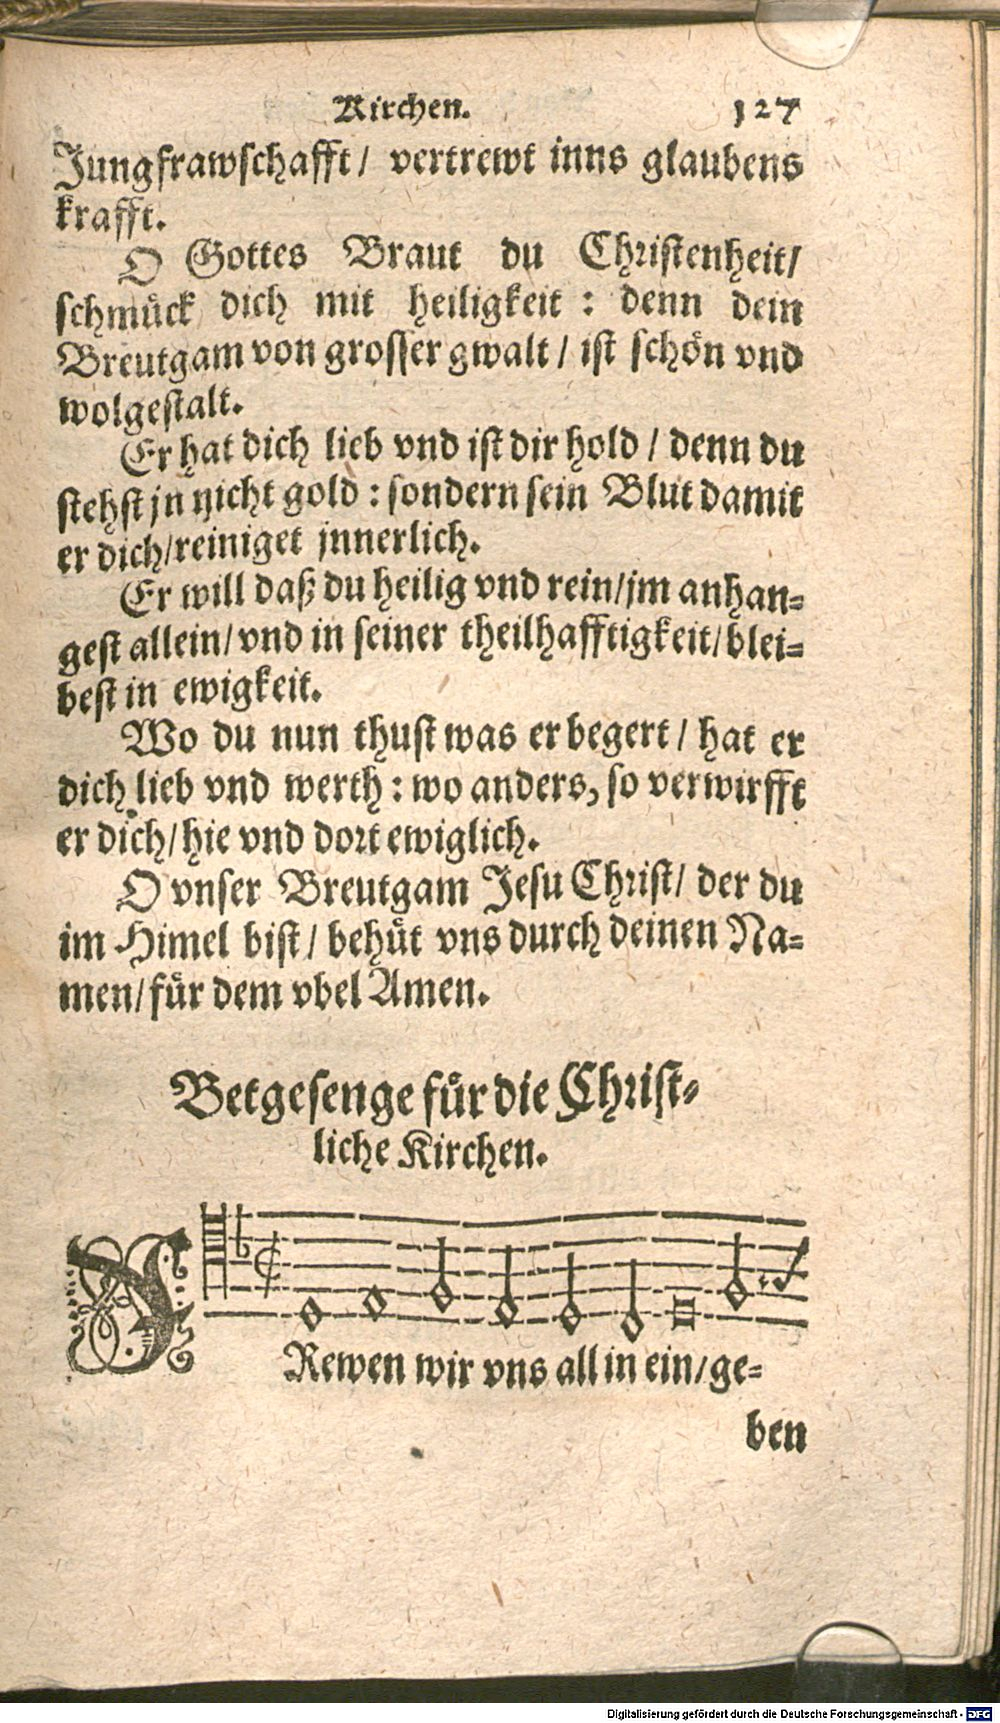 Kirchen. 127
Jungfrawschafft/ vertrewt inns glaubens
krafft.
O Gottes Braut du Christenheit/
schmuͤck dich mit heiligkeit : denn dein
Breutgam von grosser gwalt / ist schoͤn vnd
wolgestalt.
Er hat dich lieb vnd ist dir hold / denn du
stehst jn nicht gold : sondern sein Blut damit
er dich/reiniget jnnerlich.
Er will daß du heilig vnd rein/jm anhan-
gest allein/vnd in seiner theilhafftigkeit/blei-
best in ewigkeit.
Wo du nun thust was er begert / hat er
dich lieb vnd werth : wo anders, so verwirfft
er dich/hie vnd dort ewiglich.
O vnser Breutgam Jesu Christ/ der du
im Himel bist/ behuͤt vns durch deinen Na-
men/fuͤr dem vbel Amen.
Betgesenge fuͤr die Christ-
liche Kirchen.
Rewen wir vns all in ein/ge-
ben
Digitalisierung gefördert durch die Deutsche Forschungsgemeinschaft - DFG